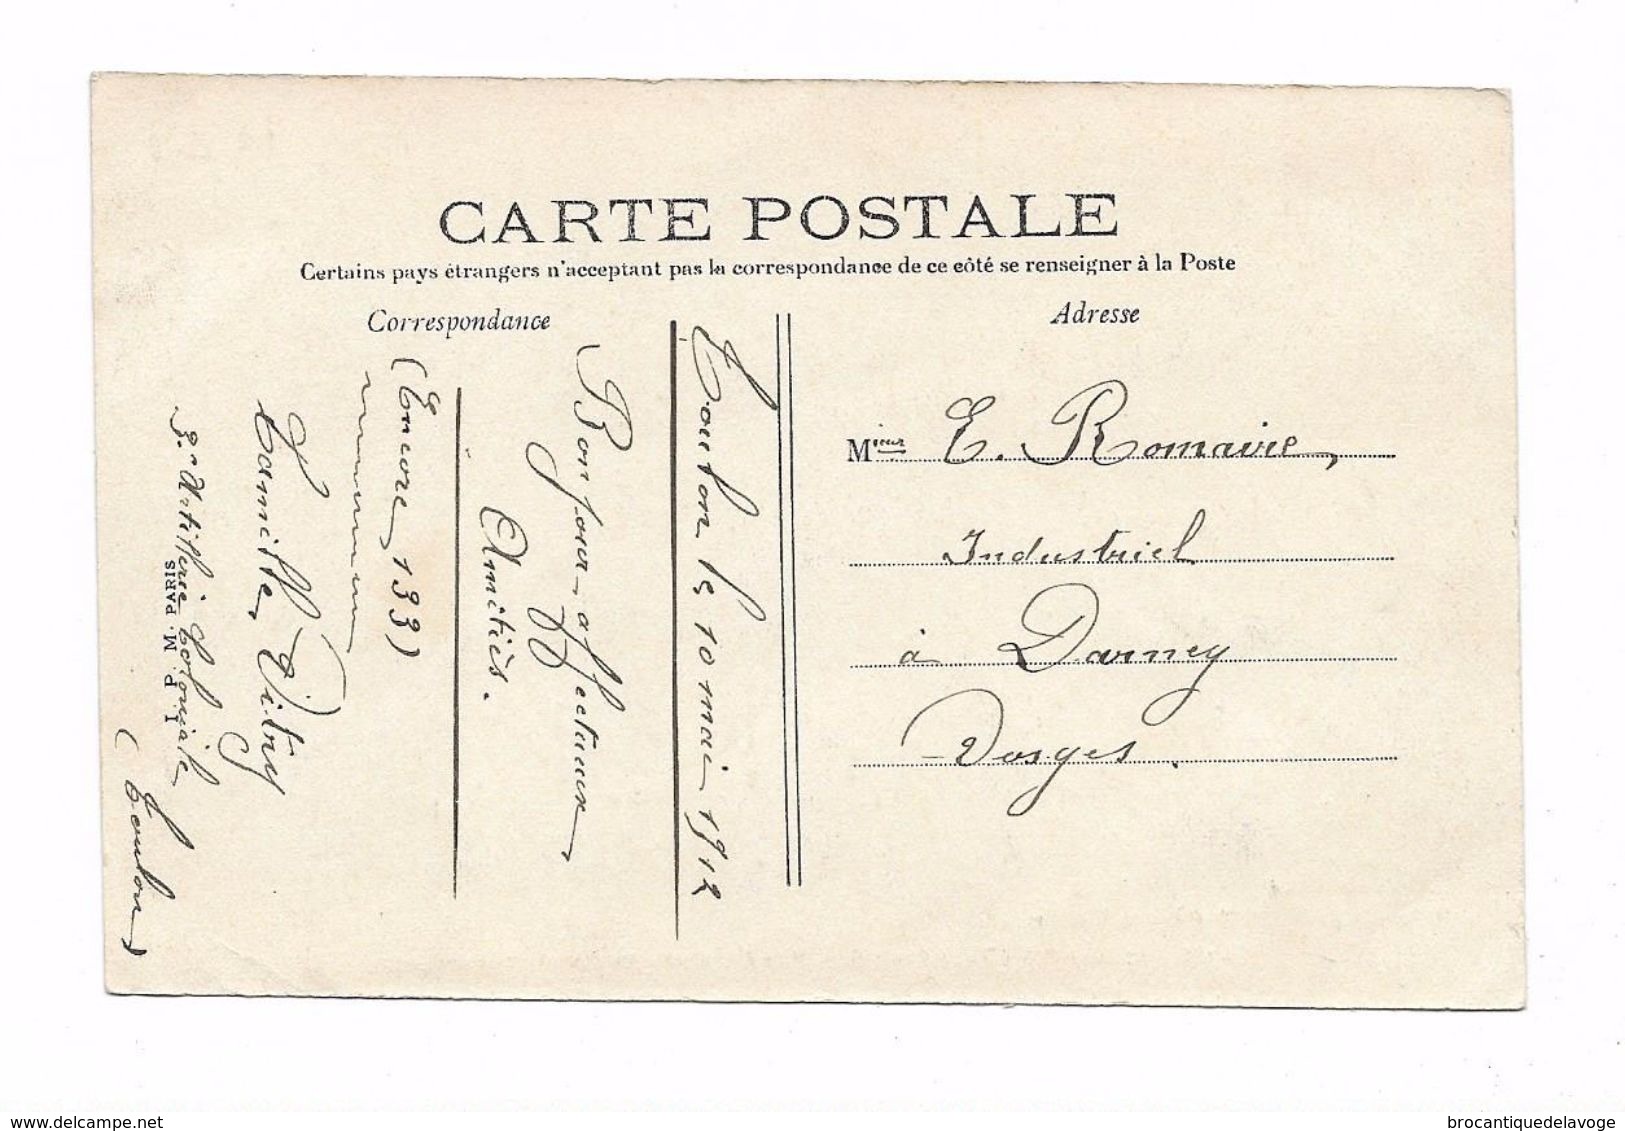 CARTE POSTALE
Certains pays étrangers n'acceptant pas la correspondance de ce côté se renseigner à la Poste
Correspondance
Adresse
Toulon le 10 mai 1912
Bonjour affectueux
Amitiés.
(Encore 133)
Camille Vitry
3e Artillerie Coloniale
(Toulon)
Mieur E. Romaire,
Industriel
à Darney
Vosges.
I. P. M. PARIS
brocantiquedelavoge